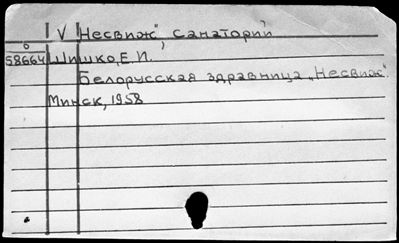 V Несвиж" санаторий
о
58664 Шишко, Е. И.
Белорусская здравница „Несвиж".
Минск, 1958